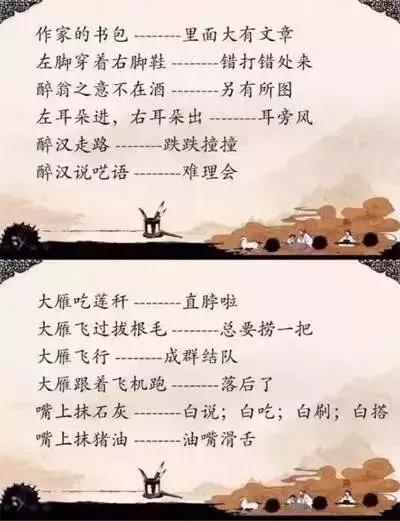 作家的书包--------里面大有文章
左脚穿着右脚鞋--------错打错处来
醉翁之意不在酒--------另有所图
左耳朵进，右耳朵出--------耳旁风
醉汉走路--------跌跌撞撞
醉汉说呓语--------难理会
大雁吃莲秆--------直脖啦
大雁飞过拔根毛--------总要捞一把
大雁飞行--------成群结队
大雁跟着飞机跑--------落后了
嘴上抹石灰--------白说；白吃；白刷；白搭
嘴上抹猪油--------油嘴滑舌